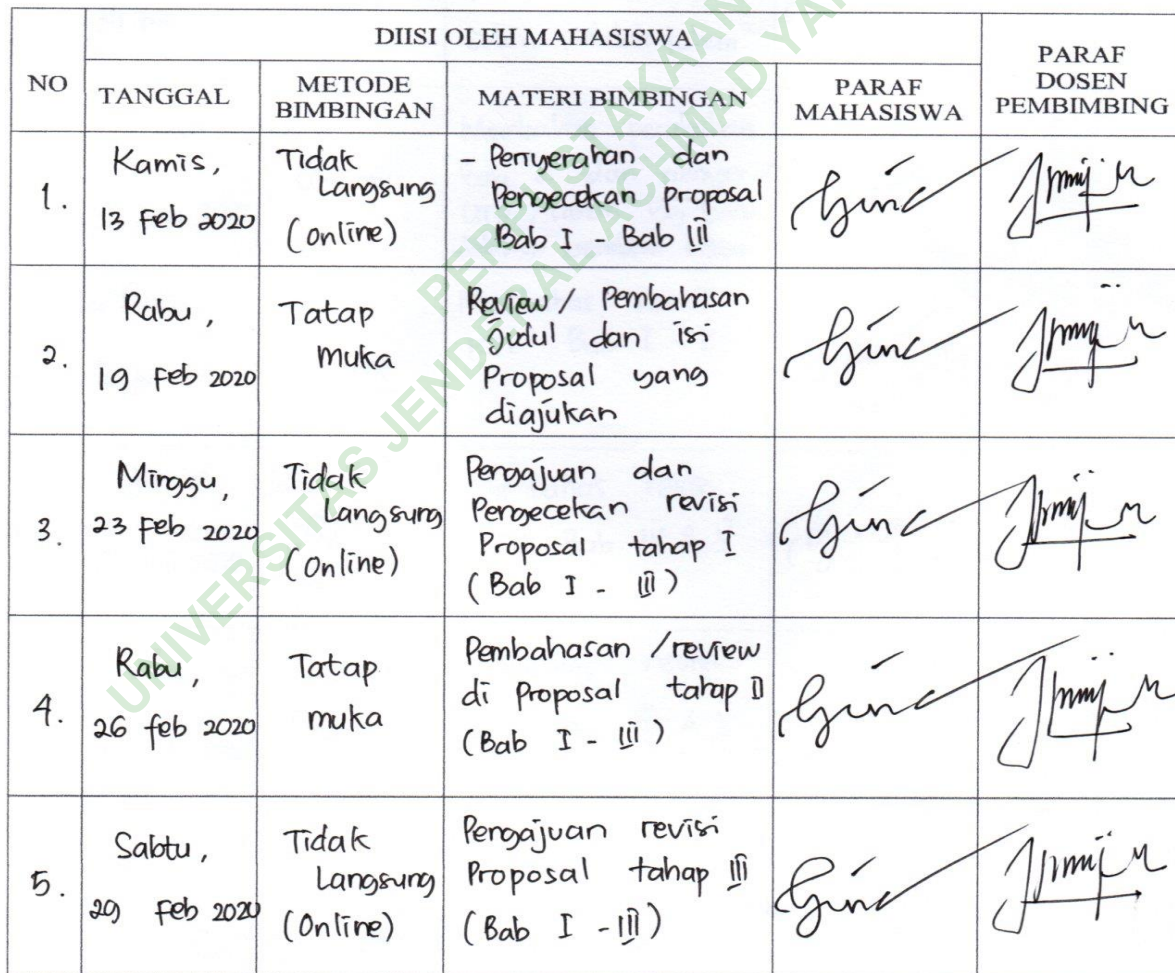 DIISI OLEH MAHASISWA
NO
TANGGAL
METODE
BIMBINGAN
MATERI BIMBINGAN
PARAF
MAHASISWA
PARAF
DOSEN
PEMBIMBING
1.
Kamis,
13 Feb 2020
Tidak
Langsung
(online)
- Penyerahan dan
Pengecekan proposal
Bab I - Bab III
2.
Rabu,
19 Feb 2020
Tatap
muka
Review / Pembahasan
Judul dan isi
Proposal yang
diajukan
3.
Minggu,
23 Feb 2020
Tidak
Langsung
(online)
Pengajuan dan
Pengecekan revisi
Proposal tahap I
(Bab I - III)
4.
Rabu,
26 feb 2020
Tatap
muka
Pembahasan / review
di Proposal tahap II
(Bab I - III)
5.
Sabtu,
29 Feb 2020
Tidak
Langsung
(Online)
Pengajuan revisi
Proposal tahap III
(Bab I - III)
PERPUSTAKAAN
UNIVERSITAS JENDERAL ACHMAD